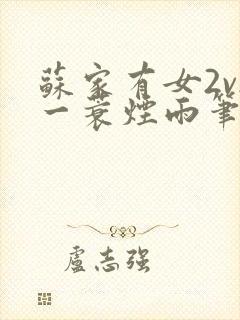 蘇家有女2v
一蓑煙雨筆
盧志強